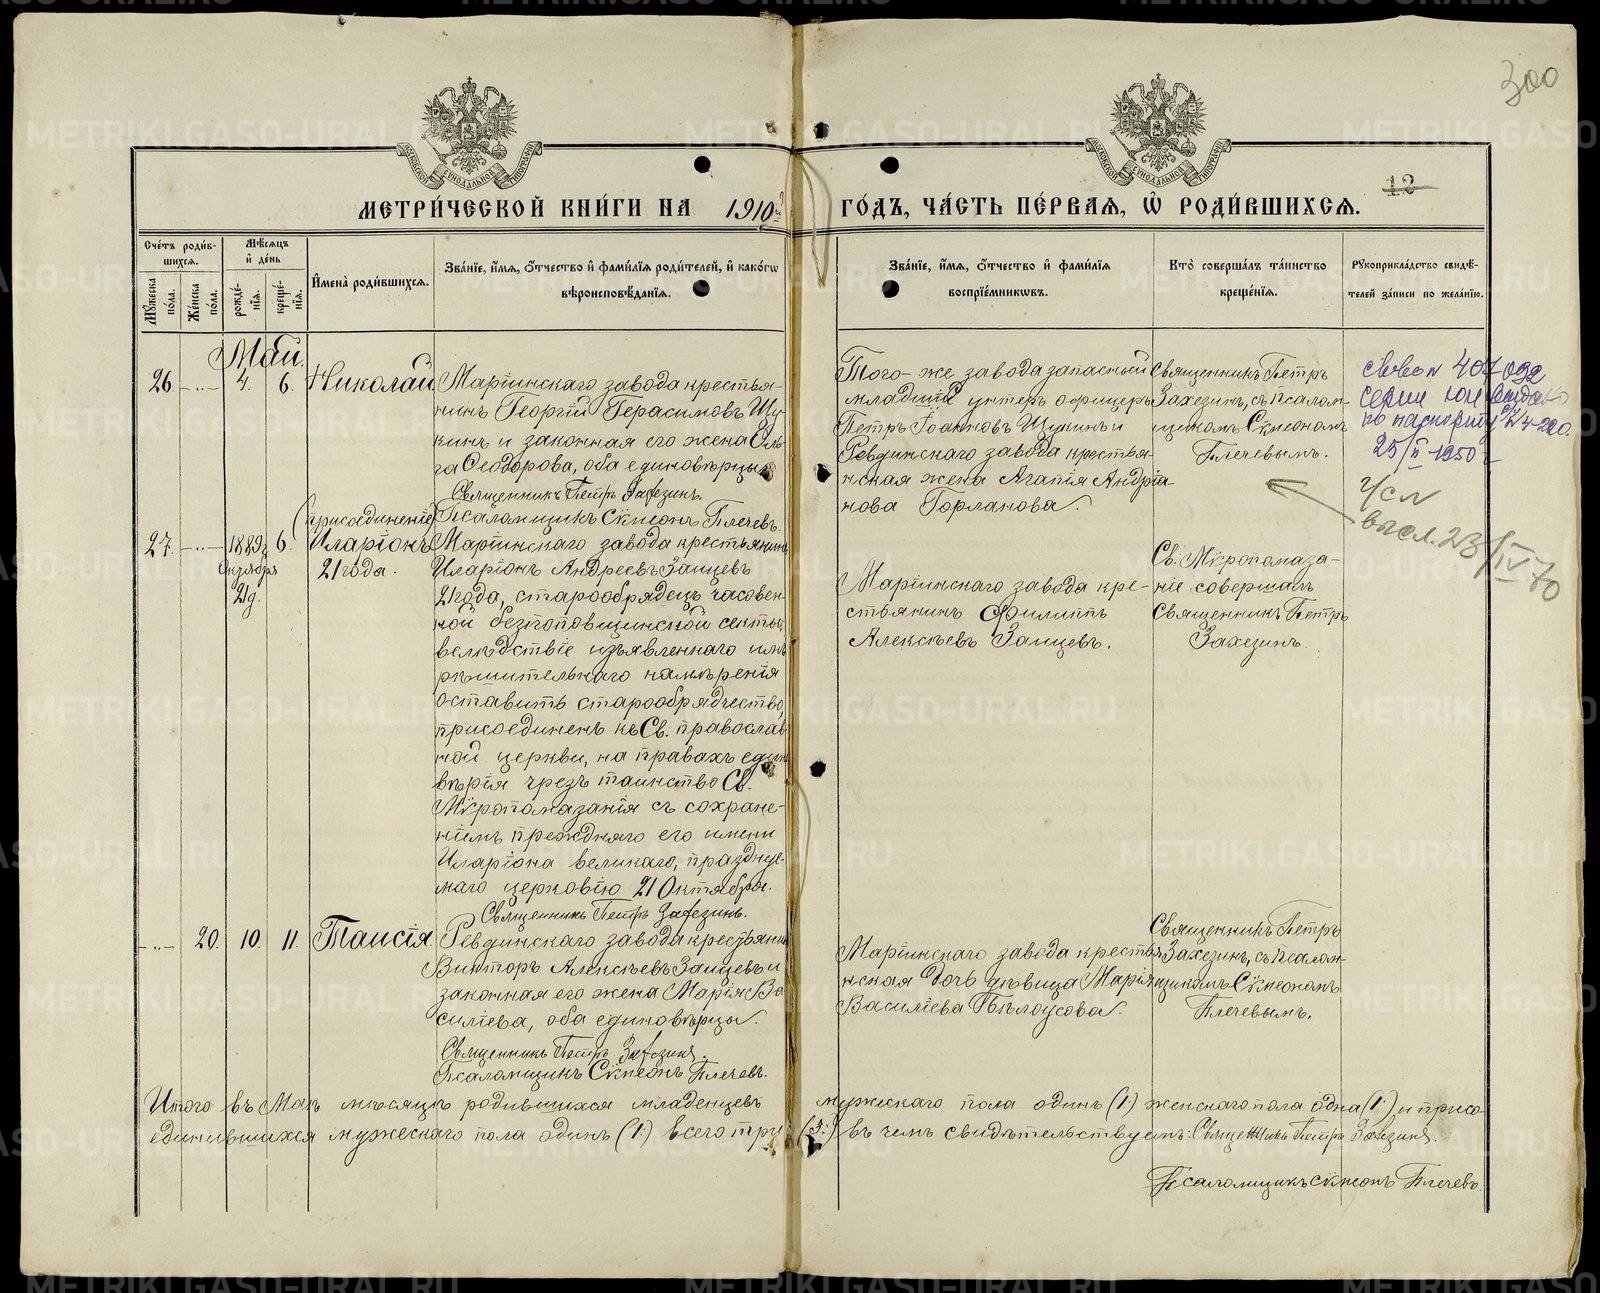 300
МОСКОВСКОЙ СѴНОДАЛЬНОЙ ТИПОГРАФІИ
МОСКОВСКОЙ СѴНОДАЛЬНОЙ ТИПОГРАФІИ
12
МЕТРИ́ЧЕСКОЙ КНИ́ГИ НА 1910й ГО́ДЪ, ЧА́СТЬ ПЕ́РВАЯ, Ѡ҆ РОДИ́ВШИХСЯ.
Сче́тъ роди́в-
шихся.
Мꙋжеска по́ла.
Же́нска по́ла.
Мѣ́сяцъ
и҆ де́нь
рожде́-
нїя.
креще́-
нїя.
И҆мена̀ роди́вшихся.
Зва́нїе, и҆́мя, ѻ҆́тчество и҆ фами́лїя роди́телей, и҆ како́гѡ
вѣроисповѣ́данїя.
Зва́нїе, и҆́мя, ѻ҆́тчество и҆ фами́лїя
воспрїе́мникѡвъ.
Кто̀ соверша́лъ та́инство
креще́нїя.
Рꙋкоприкла́дство свидѣ́-
телей за́писи по жела́нїю.
Май.
26 - „ - 4. 6. Николай
Маріинскаго завода крестья-
нинъ Георгій Герасимовъ Щу-
кинъ и законная его жена Оль-
га Ѳеодорова, оба единовѣрцы.
Священникъ Петръ Захезинъ.
Псаломщикъ Сѵмеонъ Плечевъ.
Того-же завода запасный
младшій унтеръ офицеръ
Петръ Іоанновъ Щукинъ и
Ревдинскаго завода крестья-
нская жена Агапія Андріа-
нова Горланова.
Священникъ Петръ
Захезинъ, съ псалом-
щикомъ Сѵмеономъ
Плечевымъ.
407092
серии
по паспорту
25/II-1950
23/IV 70
27. - „ - 1889г. 6.
Октября
21д.
(присоединеніе)
Иларіонъ
21 года.
Маріинскаго завода крестьянинъ
Иларіонъ Андреевъ Заицевъ
21 года, старообрядецъ часовен-
ной безпоповщинской секты,
вслѣдствіе изъявленнаго имъ
рѣшительнаго намѣренія
оставить старообрядчество,
присоединенъ къ Св. православ-
ной церкви, на правахъ едино-
вѣрія чрезъ таинство Св.
Мѵропомазанія съ сохране-
ніемъ преждняго его имени
Иларіона великаго, празднуе-
маго церковію 21 Октября.
Священникъ Петръ Захезинъ.
Маріинскаго завода кре-
стьянинъ Филиппъ
Алексѣевъ Заицевъ.
Св. Мѵропомаза-
ніе совершалъ
Священникъ Петръ
Захезинъ.
- „ - 20. 10. 11. Таисія
Ревдинскаго завода крестьянинъ
Викторъ Алексѣевъ Заицевъ и
законная его жена Марія Ва-
силіева, оба единовѣрцы.
Священникъ Петръ Захезинъ.
Псаломщикъ Сѵмеонъ Плечевъ.
Маріинскаго завода крестья-
нская дочь дѣвица Марія
Василіева Бѣлоусова.
Священникъ Петръ
Захезинъ, съ псалом-
щикомъ Сѵмеономъ
Плечевымъ.
Итого въ Маѣ мѣсяцѣ родившихся младенцевъ мужескаго пола одинъ (1.) женскаго пола одна (1.), и присо-
единившихся мужескаго пола одинъ (1.) всего три (3.) въ чемъ свидѣтельствуемъ: Священникъ Петръ Захезинъ.
Псаломщикъ Сѵмеонъ Плечевъ.
METRIKI.GASO-URAL.RU